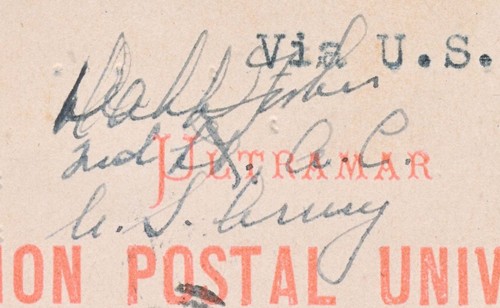 Via U.S.
2nd Lt., A.C.
ULTRAMAR
U.S. Army
ION POSTAL UNIV